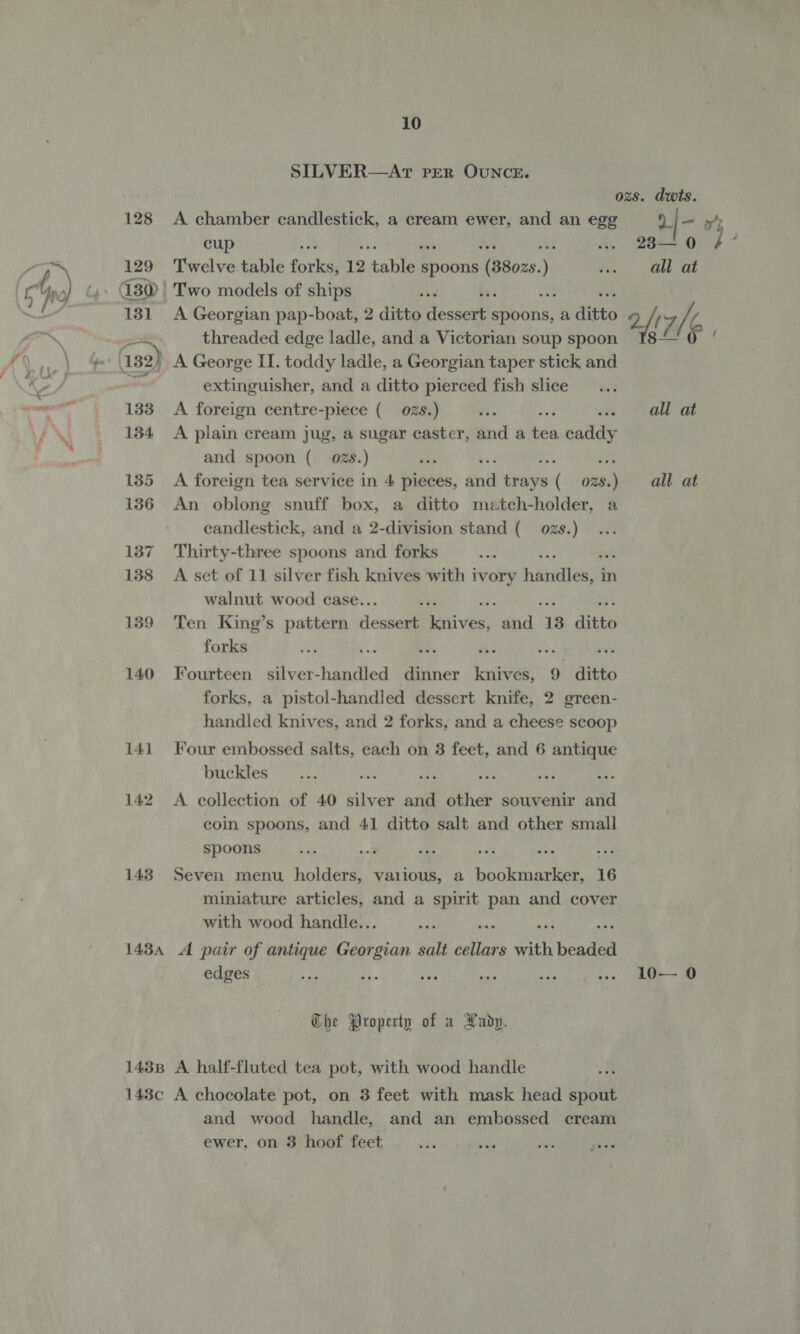 10
SILVER—AT PER OUNCE.
ozs. dwts.
128 A chamber candlestick, a cream ewer, and an egg
cup ... ... ... ... ... ... 23— 0
129 Twelve table forks, 12 table spoons (38ozs.) ... all at
(130) Two models of ships ... ... ... ...
131 A Georgian pap-boat, 2 ditto dessert spoons, a ditto 2/17/6
threaded edge ladle, and a Victorian soup spoon 18— 0
(132) A George II. toddy ladle, a Georgian taper stick and
extinguisher, and a ditto pierced fish slice ...
133 A foreign centre-piece ( ozs.) ... ... ... all at
134 A plain cream jug, a sugar caster, and a tea caddy
and spoon ( ozs.) ... ... ... ...
135 A foreign tea service in 4 pieces, and trays ( ozs.) all at
136 An oblong snuff box, a ditto match-holder, a
candlestick, and a 2-division stand ( ozs.) ...
137 Thirty-three spoons and forks ... ... ...
138 A set of 11 silver fish knives with ivory handles, in
walnut wood case... ... ... ... ...
139 Ten King's pattern dessert knives, and 13 ditto
forks ... ... ... ... ... ...
140 Fourteen silver-handled dinner knives, 9 ditto
forks, a pistol-handled dessert knife, 2 green-
handled knives, and 2 forks, and a cheese scoop
141 Four embossed salts, each on 3 feet, and 6 antique
buckles ... ... ... ... ... ...
142 A collection of 40 silver and other souvenir and
coin spoons, and 41 ditto salt and other small
spoons ... ... ... ... ... ...
143 Seven menu holders, various, a bookmarker, 16
miniature articles, and a spirit pan and cover
with wood handle... ... ... ... ...
143A A pair of antique Georgian salt cellars with beaded
edges ... ... ... ... ... ... 10— 0
The Property of a Lady.
143B A half-fluted tea pot, with wood handle ...
143C A chocolate pot, on 3 feet with mask head spout
and wood handle, and an embossed cream
ewer, on 3 hoof feet ... ... ... ...